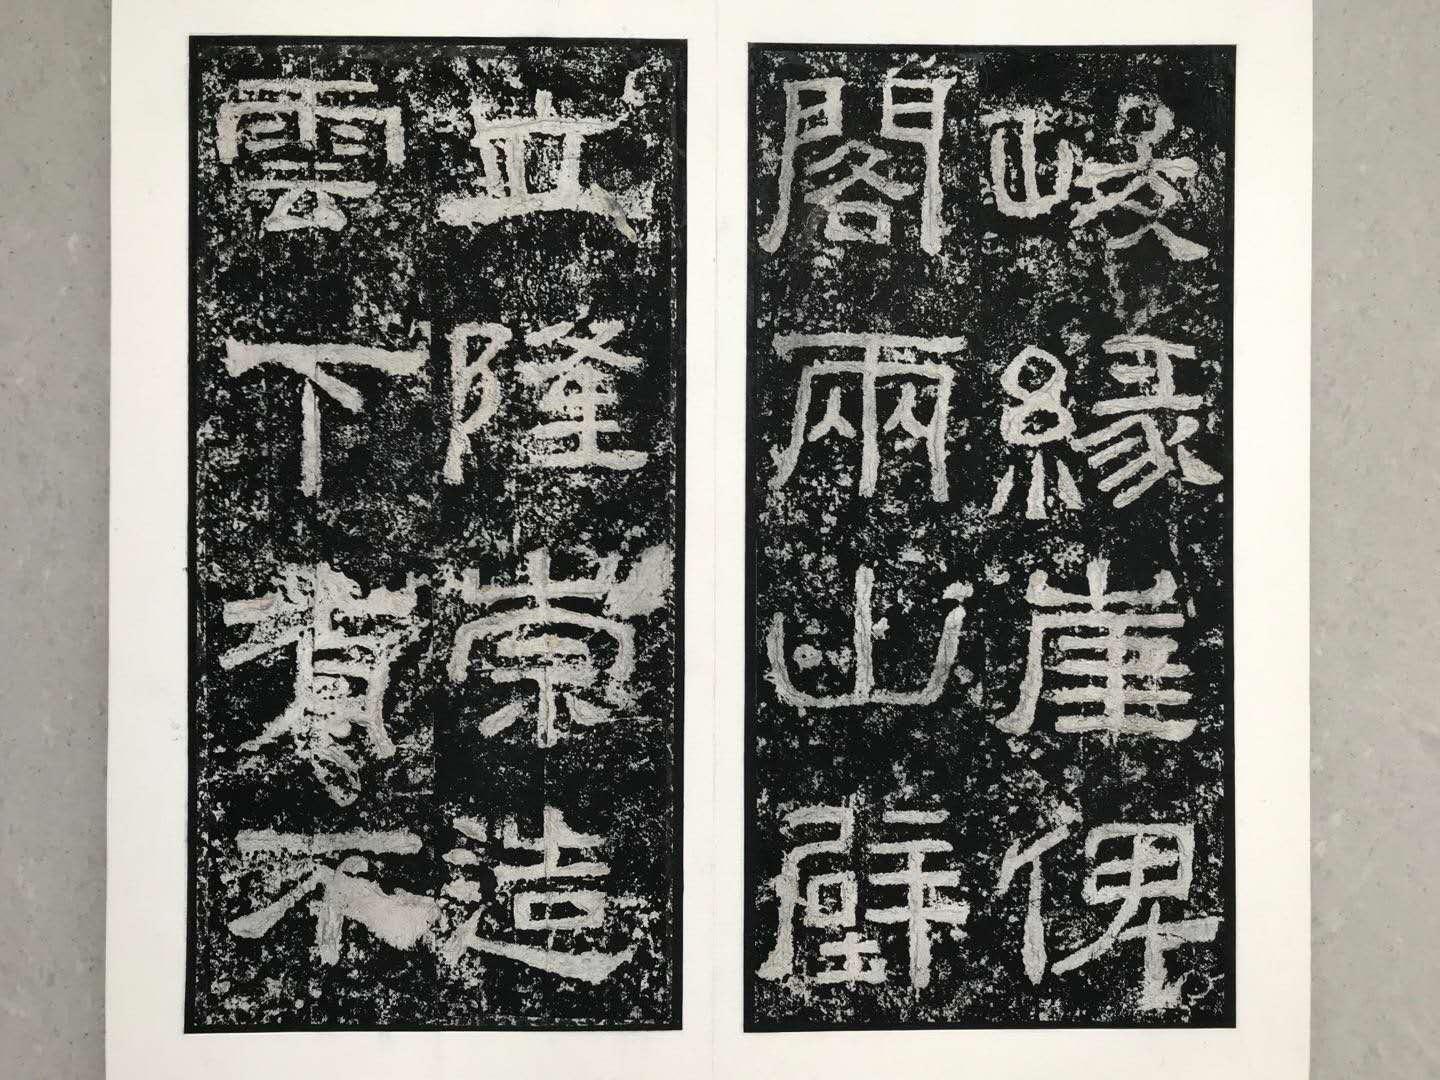 峻緣崖俾
閣兩山壁
立隆崇造
雲下有不